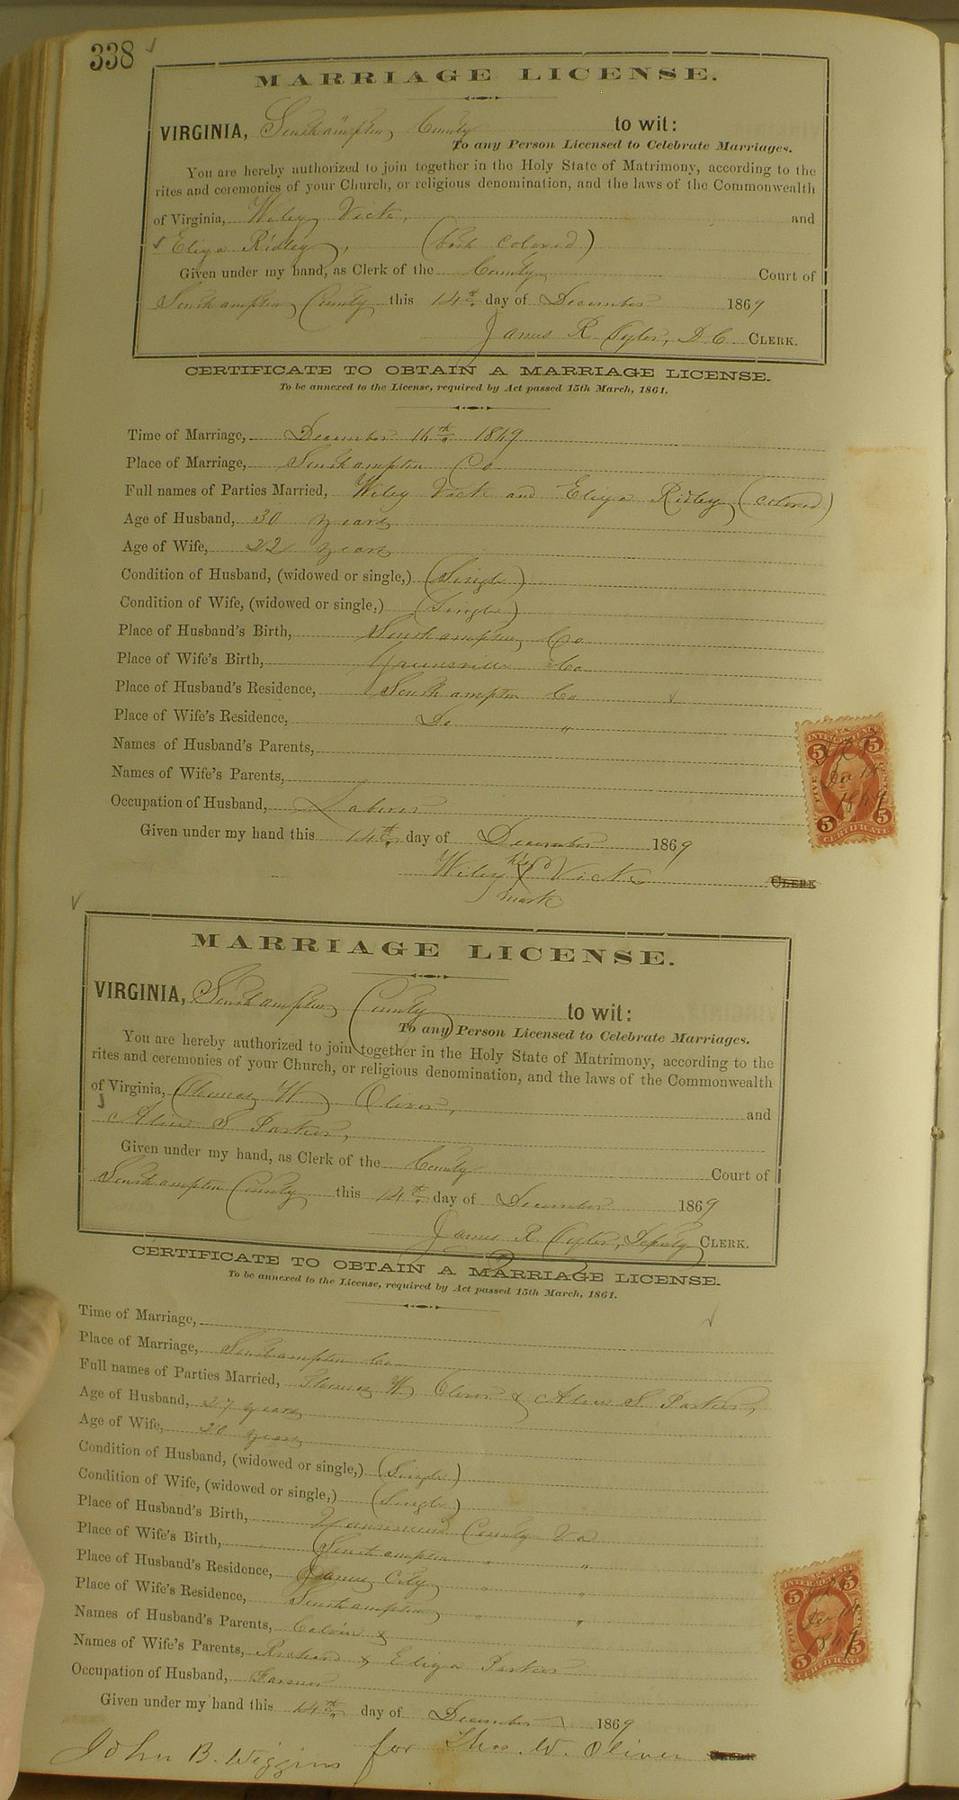 338
MARRIAGE LICENSE.
VIRGINIA, Southampton County to wit:
To any Person Licensed to Celebrate Marriages.
You are hereby authorized to join together in the Holy State of Matrimony, according to the
rites and ceremonies of your Church, or religious denomination, and the laws of the Commonwealth
of Virginia, Wiley Vick, and
Eliza Ridley, (both colored)
Given under my hand, as Clerk of the County Court of
Southampton County this 14th day of December 1869
James R. Tyler, D.C. CLERK.
CERTIFICATE TO OBTAIN A MARRIAGE LICENSE.
To be annexed to the License, required by Act passed 15th March, 1861.
Time of Marriage, December 16th 1869
Place of Marriage, Southampton Co
Full names of Parties Married, Wiley Vick and Eliza Ridley (colored)
Age of Husband, 30 years
Age of Wife, 22 years
Condition of Husband, (widowed or single,) (Single)
Condition of Wife, (widowed or single,) (Single)
Place of Husband's Birth, Southampton Co
Place of Wife's Birth, Greensville Co
Place of Husband's Residence, Southampton Co
Place of Wife's Residence, Do "
Names of Husband's Parents,
Names of Wife's Parents,
Occupation of Husband, Laborer
Given under my hand this 14th day of December 1869
Wiley his X Vick CLERK
mark
MARRIAGE LICENSE.
VIRGINIA, Southampton County to wit:
To any Person Licensed to Celebrate Marriages.
You are hereby authorized to join together in the Holy State of Matrimony, according to the
rites and ceremonies of your Church, or religious denomination, and the laws of the Commonwealth
of Virginia, Thomas W Oliver, and
S Parker,
Given under my hand, as Clerk of the County Court of
Southampton County this 14th day of December 1869
James R. Tyler, Deputy CLERK.
CERTIFICATE TO OBTAIN A MARRIAGE LICENSE.
To be annexed to the License, required by Act passed 15th March, 1861.
Time of Marriage,
Place of Marriage, Southampton Co
Full names of Parties Married, Thomas W Oliver & S Parker,
Age of Husband, 27 years
Age of Wife, years
Condition of Husband, (widowed or single,) (Single)
Condition of Wife, (widowed or single,) (Single)
Place of Husband's Birth, Nansemond County Va
Place of Wife's Birth, Southampton " "
Place of Husband's Residence, James City " "
Place of Wife's Residence, Southampton " "
Names of Husband's Parents, Calvin &
Names of Wife's Parents, Richard & Eliza Parker
Occupation of Husband, Farmer
Given under my hand this 14th day of December 1869
John B. Wiggins for Thos. W. Oliver